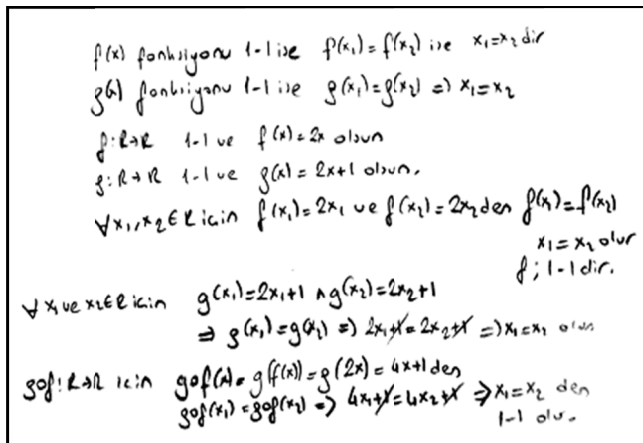 f(x) fonksiyonu 1-1 ise f(x₁)=f(x₂) ise x₁=x₂ dir
g(x) fonksiyonu 1-1 ise g(x₁)=g(x₂) => x₁=x₂
f:R→R 1-1 ve f(x)=2x olsun
g:R→R 1-1 ve g(x)=2x+1 olsun.
∀x₁,x₂∈R için f(x₁)=2x₁ ve f(x₂)=2x₂ den f(x₁)=f(x₂)
x₁=x₂ olur
f; 1-1 dir.
∀x₁ ve x₂∈R için g(x₁)=2x₁+1 ∧ g(x₂)=2x₂+1
⇒ g(x₁)=g(x₂) => 2x₁+1=2x₂+1 => x₁=x₂ olur
gof:R→R için gof(x)=g(f(x))=g(2x)=4x+1 den
gof(x₁)=gof(x₂) => 4x₁+1=4x₂+1 => x₁=x₂ den
1-1 olur.